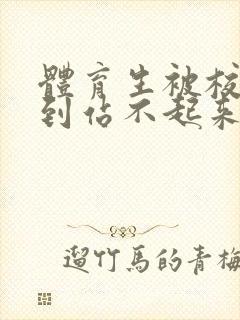 體育生被校
到佔不起來
遛竹馬的青梅